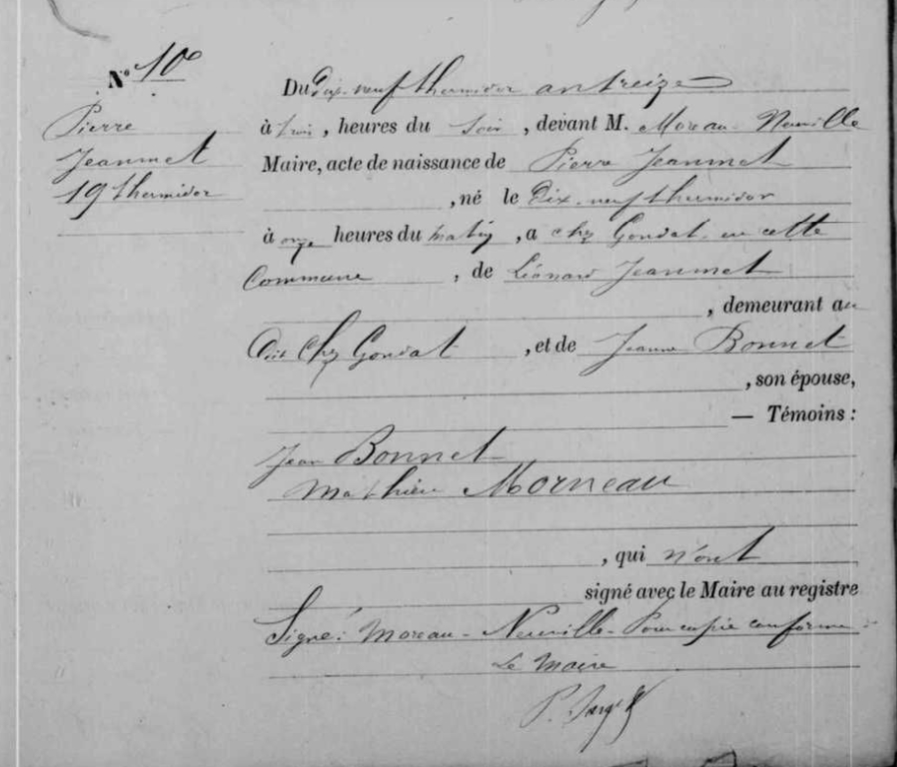 N° 10
Pierre
Jeannet
19 thermidor
Du Dix-neuf thermidor an treize
à trois, heures du soir, devant M. Moreau-Neuville
Maire, acte de naissance de Pierre Jeannet
, né le Dix-neuf thermidor
à onze heures du matin, a chez Gondat en cette
Commune, de Léonard Jeannet
, demeurant au
Dit chez Gondat, et de Jeanne Bonnet
, son épouse,
— Témoins :
Jean Bonnet
Mathieu Morneau
, qui n'ont
signé avec le Maire au registre
Signé: Moreau-Neuville - Pour copie conforme
Le Maire
P.